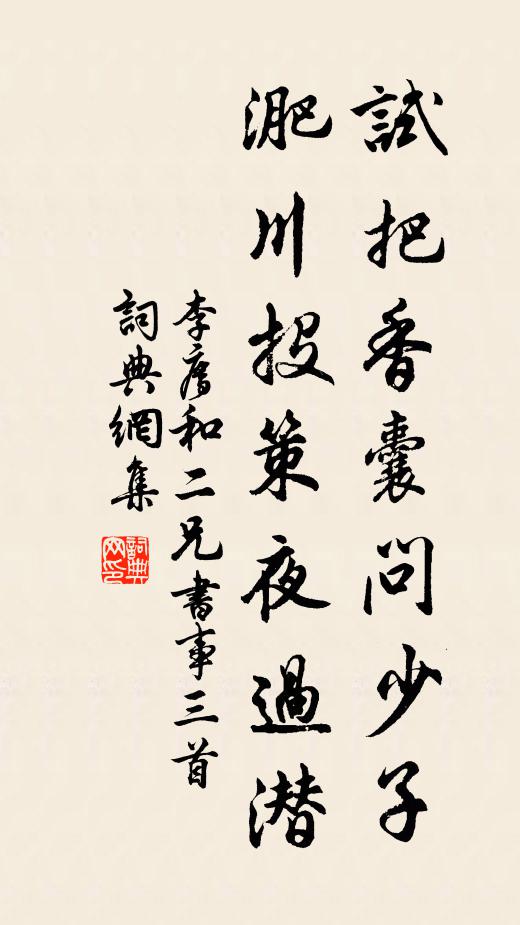 試把香囊問少子
淝川投策夜過潜
李廌和二兄書事三首
詞典網集
詞典网印